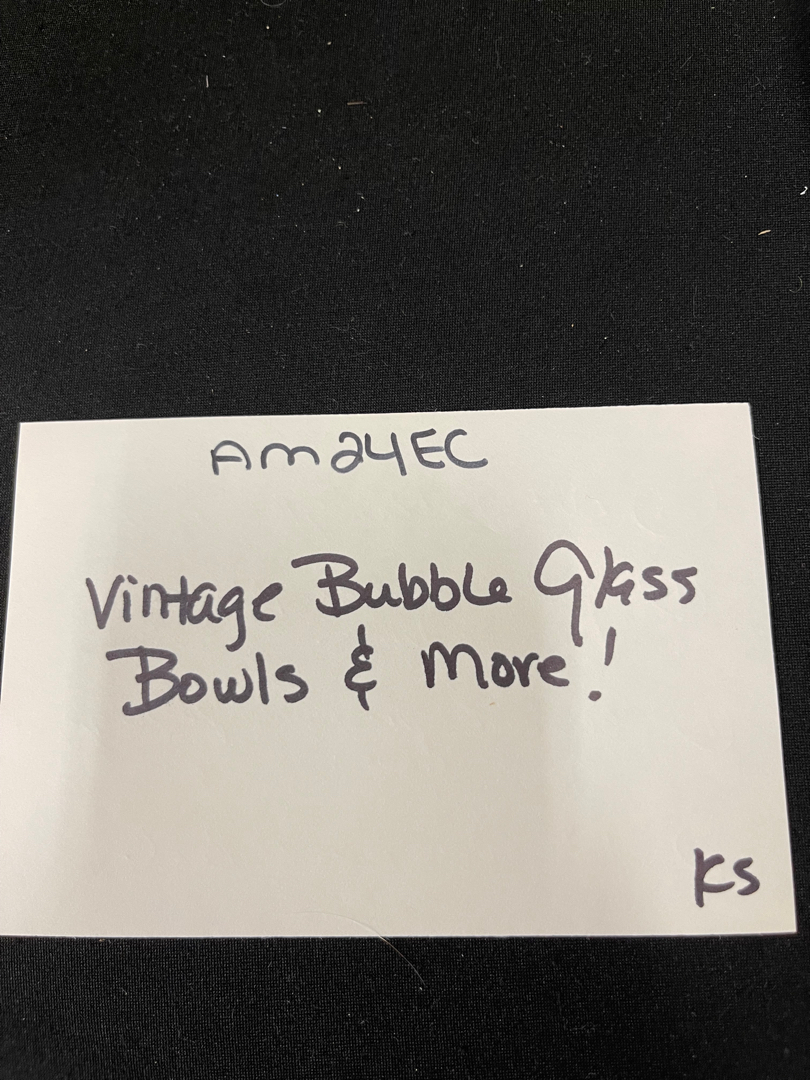 Am24EC
Vintage Bubble Glass
Bowls & More!
KS